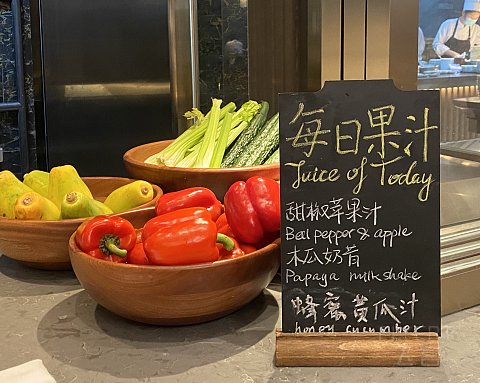 每日果汁
Juice of Today
甜椒苹果汁
Bell pepper & apple
木瓜奶昔
Papaya milkshake
蜂蜜黄瓜汁
honey cucumber